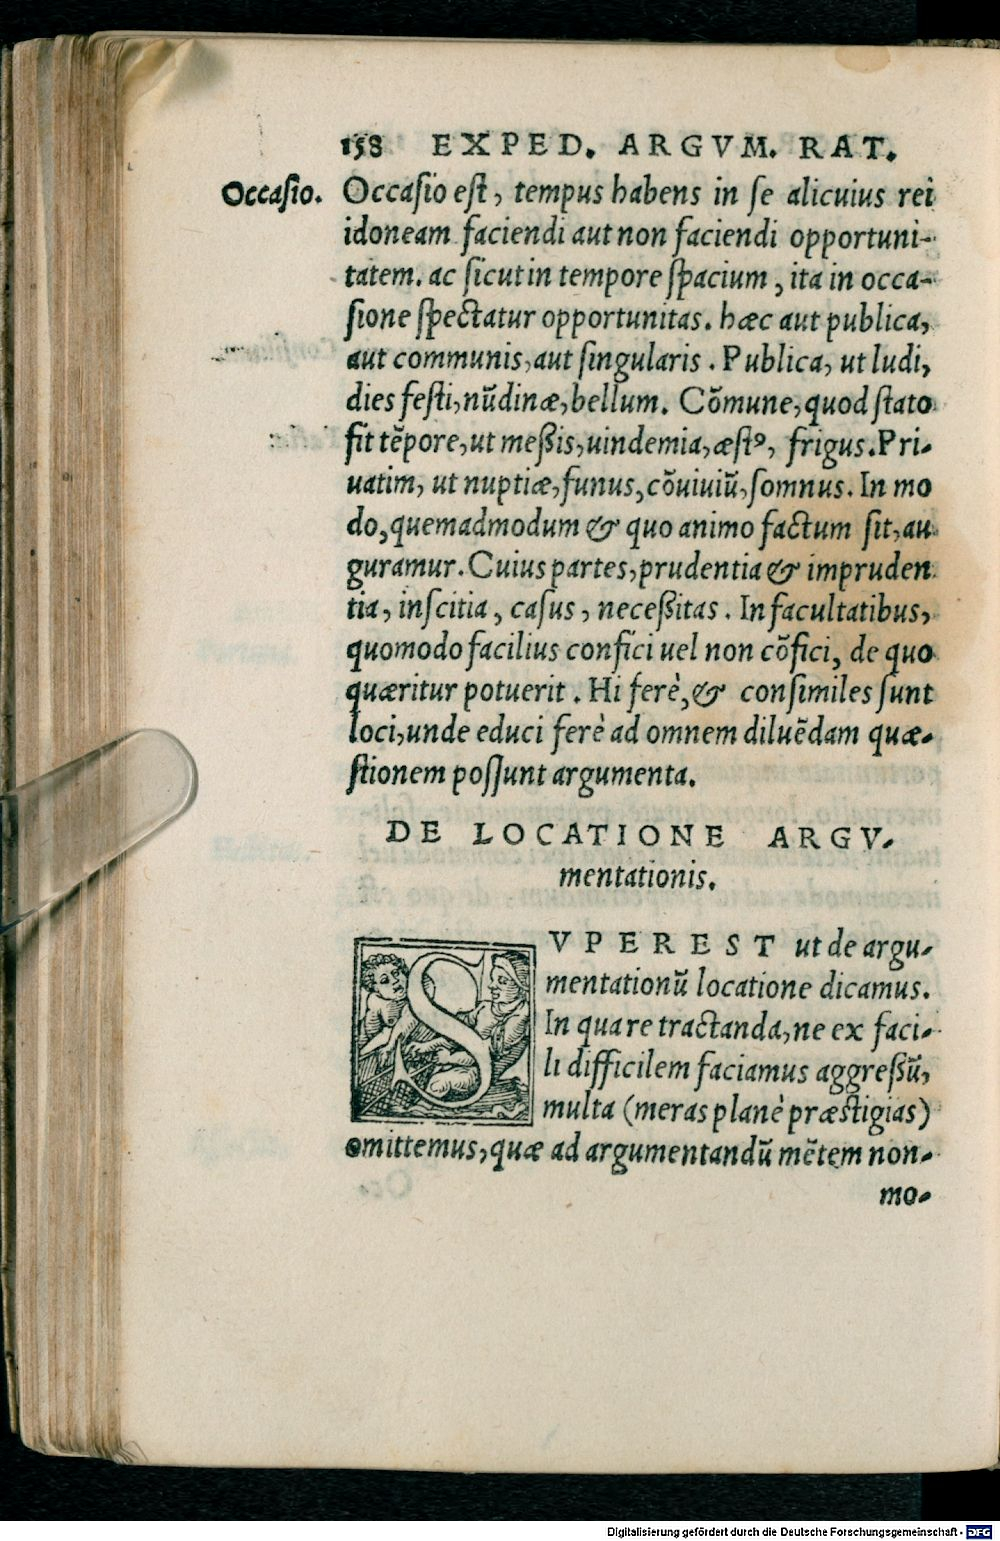 158 EXPED. ARGVM. RAT.
Occasio. Occasio est, tempus habens in se alicuius rei
idoneam faciendi aut non faciendi opportuni-
tatem. ac sicut in tempore spacium, ita in occa-
sione spectatur opportunitas. hæc aut publica,
aut communis, aut singularis. Publica, ut ludi,
dies festi, nũdinæ, bellum. Cõmune, quod stato
fit tẽpore, ut meßis, uindemia, æstꝰ, frigus. Pri-
uatim, ut nuptiæ, funus, cõuiuiũ, somnus. In mo
do, quemadmodum & quo animo factum sit, au
guramur. Cuius partes, prudentia & impruden
tia, inscitia, casus, neceßitas. In facultatibus,
quomodo facilius confici uel non cõfici, de quo
quæritur potuerit. Hi ferè, & consimiles sunt
loci, unde educi ferè ad omnem diluẽdam quæ-
stionem possunt argumenta.
DE LOCATIONE ARGV-
mentationis.
SVPEREST ut de argu-
mentationũ locatione dicamus.
In qua re tractanda, ne ex faci-
li difficilem faciamus aggreßũ,
multa (meras planè præstigias)
omittemus, quæ ad argumentandũ mẽtem non-
mo-
Digitalisierung gefördert durch die Deutsche Forschungsgemeinschaft - DFG